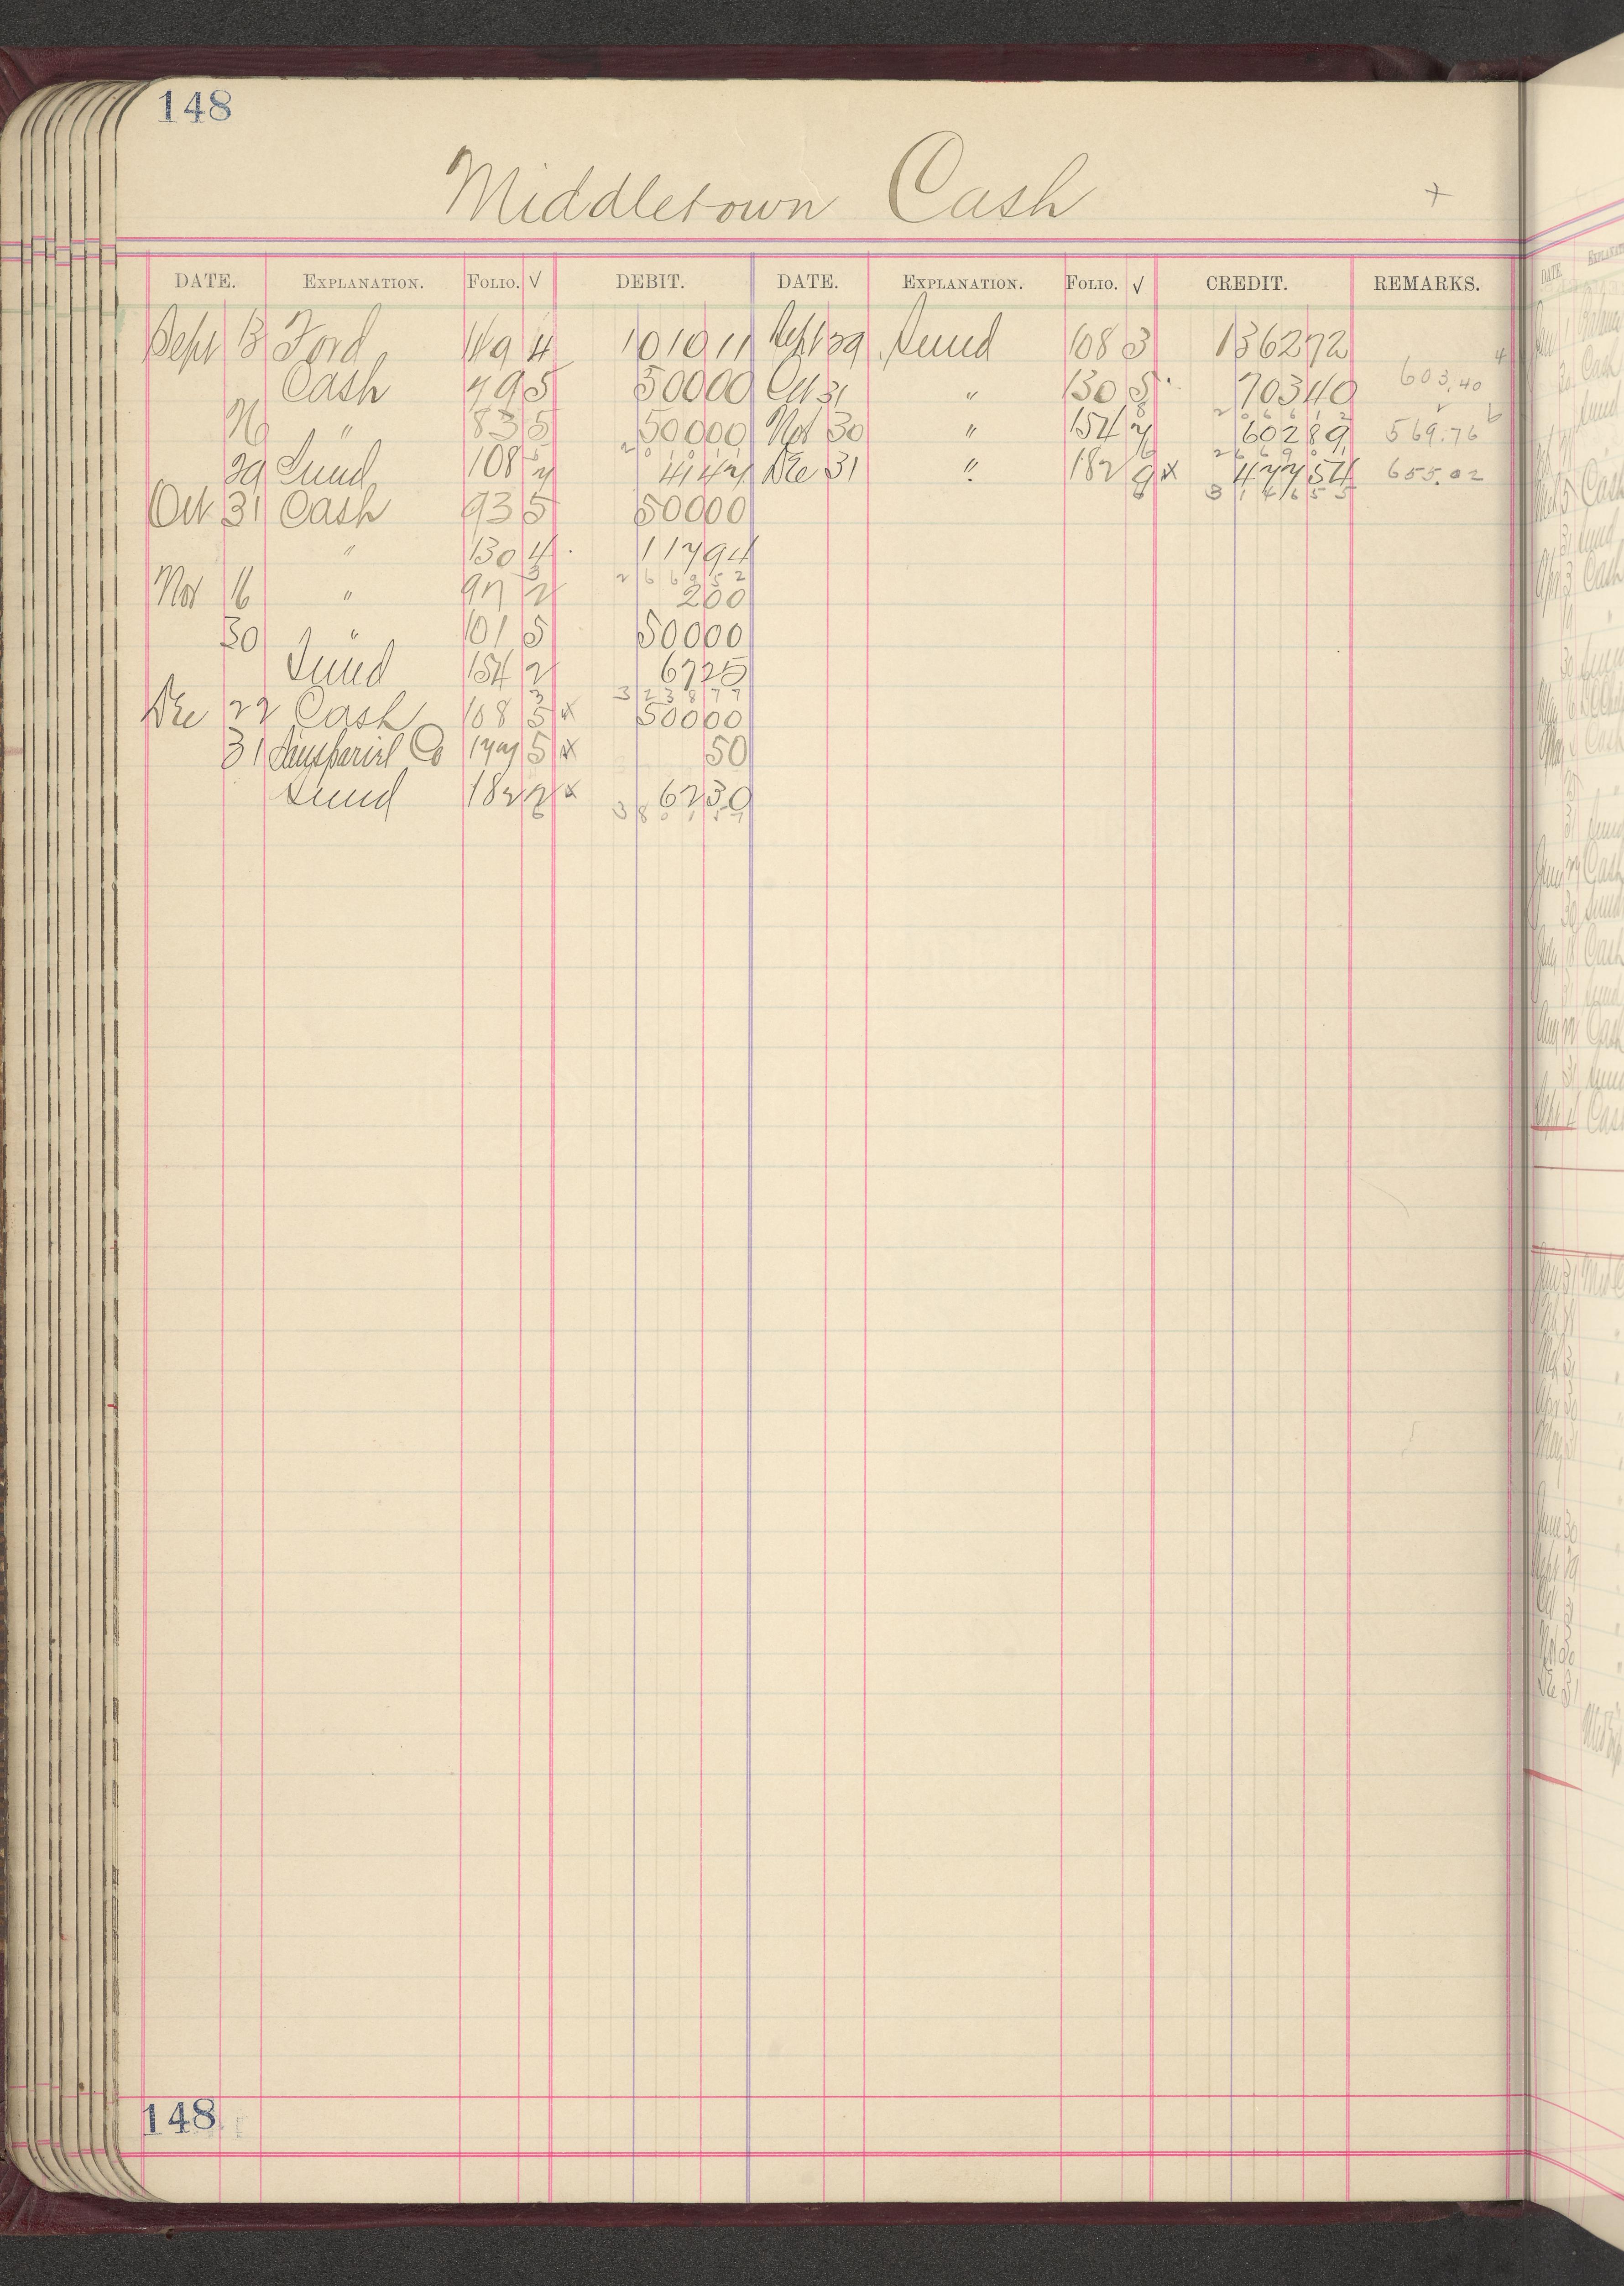 148
Middletown Cash +
DATE. EXPLANATION. FOLIO. √ DEBIT. DATE. EXPLANATION. FOLIO. √ CREDIT. REMARKS.
Sept 13 Ford 4 1010 11 Sept 29 Sund 108 3 1362 72
Cash 79 5 500 00 Oct 31 " 130 5 703 40 603.40
" 83 5 500 00 Nov 30 " 154 7 602 89 569.76
2066 12
29 Sund 108 7 41 47 Dec 31 " 182 9 x 477 54 655.02
2669 01
3146 55
Oct 31 Cash 93 5 500 00
" 130 4 117 94
2669 52
Nov 16 " 97 2 2 00
30 " 101 5 500 00
Sund 154 2 67 25
3238 77
Dec 22 Cash 108 5 x 500 00
31 Co 177 5 x 50
Sund 182 2 x 62 30
3801 57
148